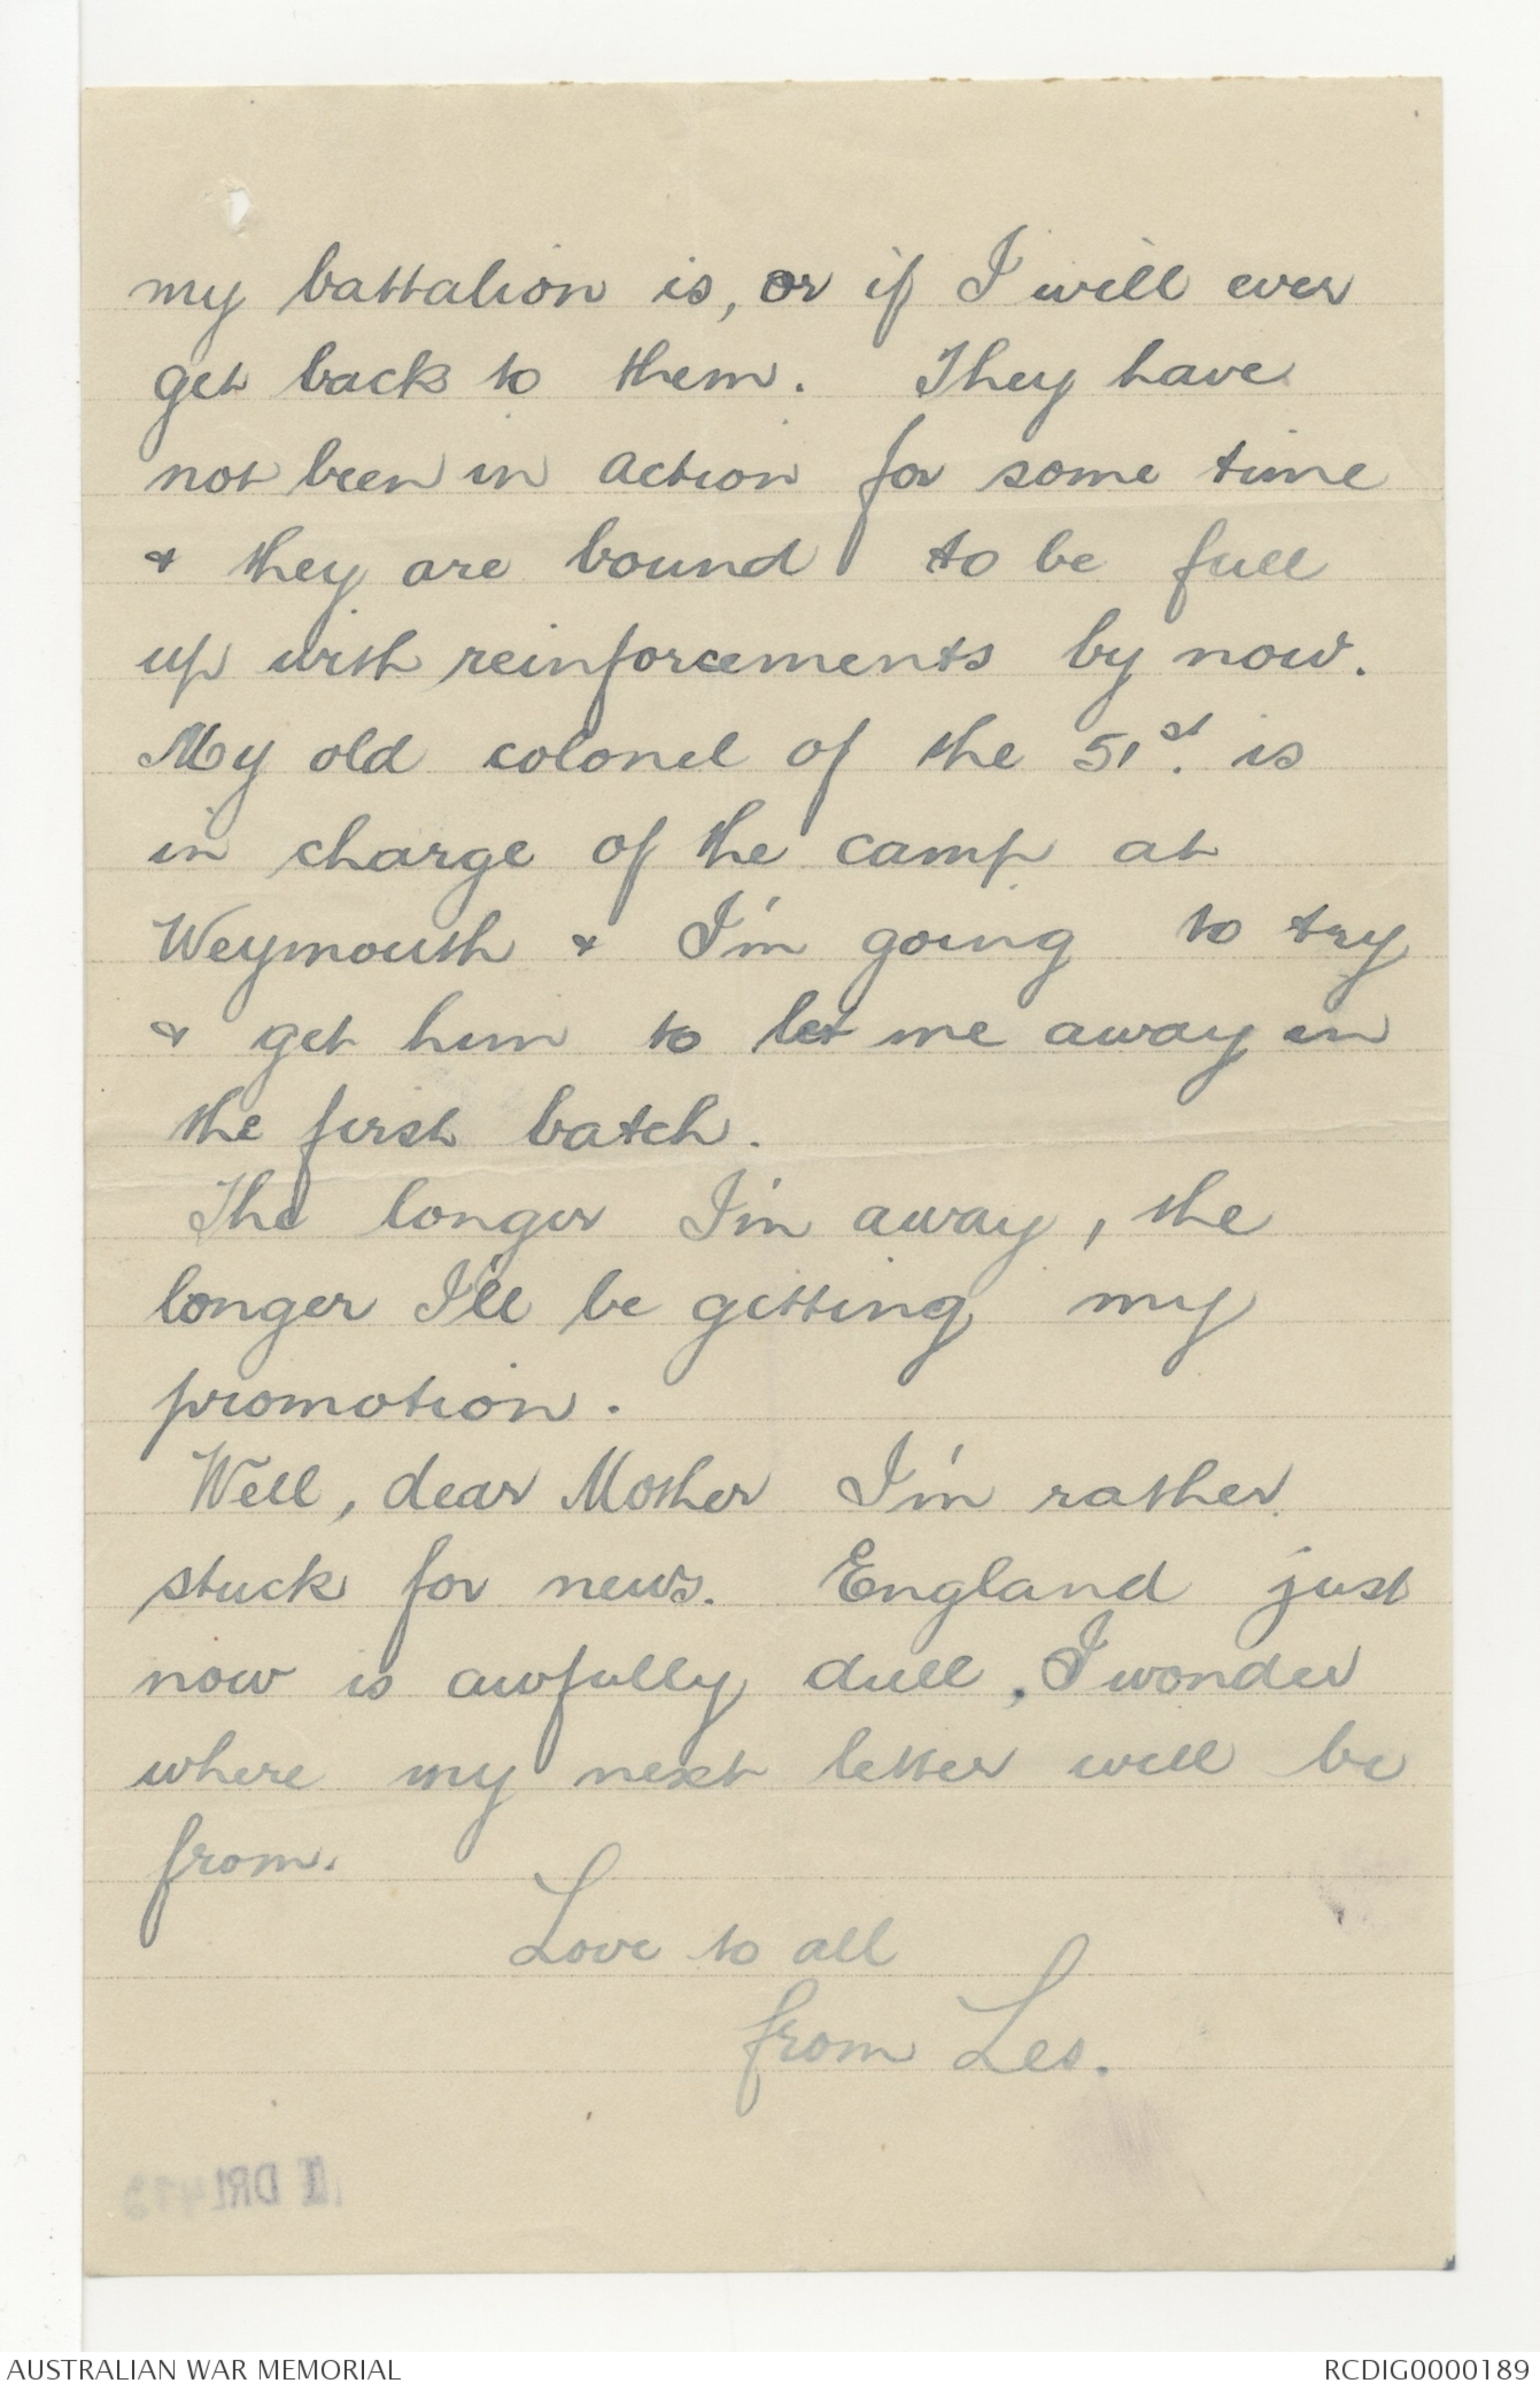 my battalion is, or if I will ever
get back to them. They have
not been in action for some time
& they are bound to be full
up with reinforcements by now.
My old colonel of the 51st. is
in charge of the camp at
Weymouth & I'm going to try
& get him to let me away in
the first batch.
The longer I'm away, the
longer I'll be getting my
promotion.
Well, dear Mother I'm rather
stuck for news. England just
now is awfully dull, I wonder
where my next letter will be
from.
Love to all
from Les.
DRL
AUSTRALIAN WAR MEMORIAL
RCDIG0000189